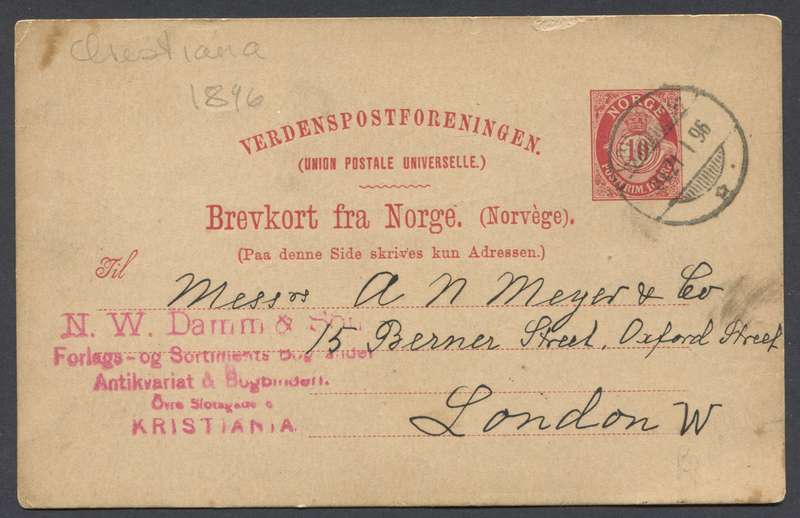 Christiana
1896
VERDENSPOSTFORENINGEN.
(UNION POSTALE UNIVERSELLE.)
NORGE
10
POSTFRIM.
24 1 96
Brevkort fra Norge. (Norvège).
(Paa denne Side skrives kun Adressen.)
Til
Messrs A N Meyer & Co
15 Berner Street, Oxford Street
London W
N. W. Damm & Søn
Forlags- og Sortiments
Antikvariat & Bogbinderi.
Øvre Slotsgade
KRISTIANIA.